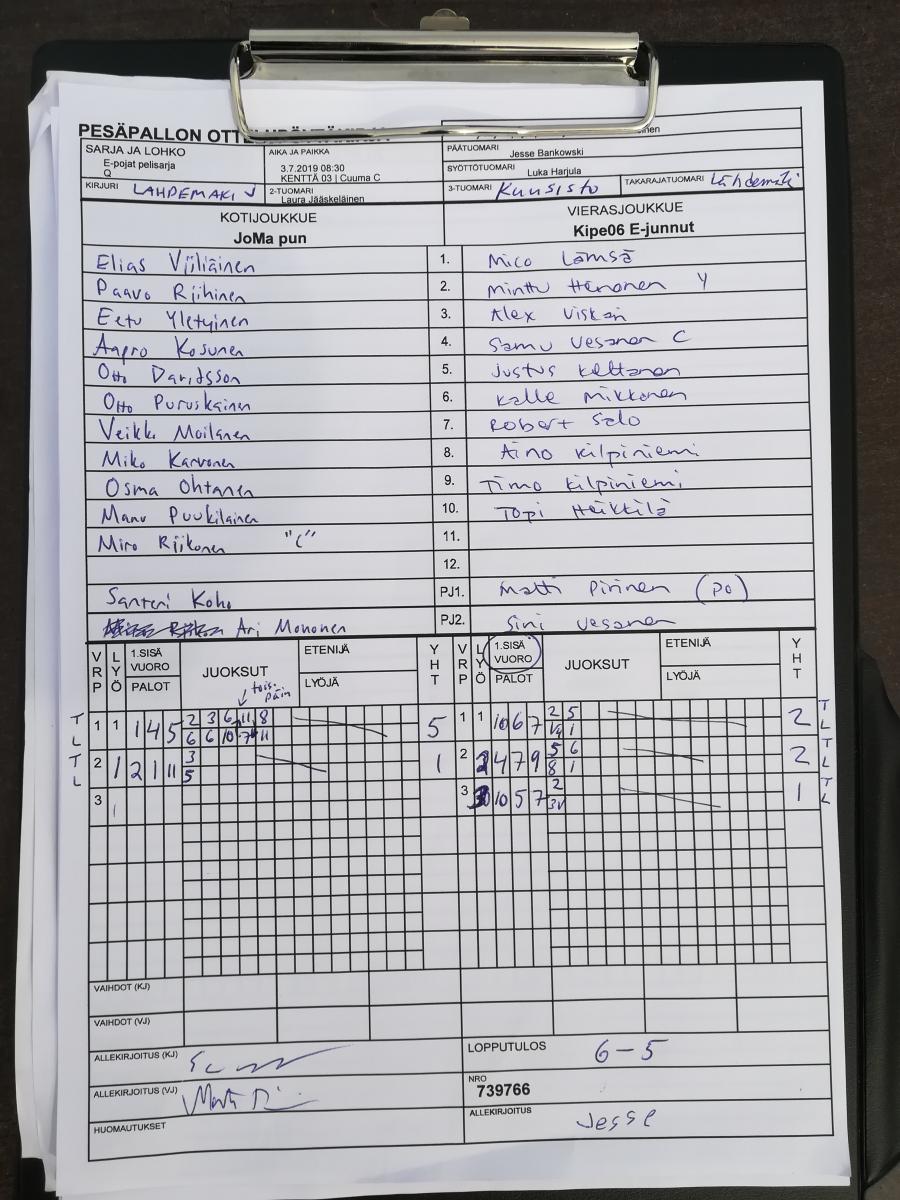 PESÄPALLON
SARJA JA LOHKO
E-pojat pelisarja
Q
AIKA JA PAIKKA
3.7.2019 08:30
KENTTÄ 03 | Cuuma C
PÄÄTUOMARI
Jesse Bankowski
SYÖTTÖTUOMARI
Luka Harjula
KIRJURI LAHDEMAKI J
2-TUOMARI
Laura Jääskeläinen
3-TUOMARI Kuusisto
TAKARAJATUOMARI Lähdemäki
KOTIJOUKKUE
JoMa pun
VIERASJOUKKUE
Kipe06 E-junnut
Elias Viiliäinen 1. Mico Lämsä
Paavo Riihinen 2. Minttu Hänonen Y
Eetu Yletyinen 3. Alex Viskari
Aapro Kosunen 4. Samu Vesanen C
Otto Davidsson 5. Justus Keltanen
Otto Puruskainen 6. Kalle Mikkonen
Veikko Moilanen 7. Robert Salo
Miko Karvonen 8. Aino Kilpiniemi
Osma Ohtanen 9. Timo Kilpiniemi
Manu Puukilainen 10. Topi Heikkilä
Miro Riikonen "C" 11.
12.
Santeri Koho PJ1. Matti Pirinen (PO)
Ari Mononen PJ2. Sini Vesanen
VRP LYÖ 1.SISÄ VUORO PALOT JUOKSUT ETENIJÄ LYÖJÄ YHT VRP LYÖ 1.SISÄ VUORO PALOT JUOKSUT ETENIJÄ LYÖJÄ YHT
↓ tois-
päin
TL 1 1 1 4 5 2 3 6 11 8 5 1 1 10 6 7 2 5 2 TL
6 6 10 7 11 1
TL 2 1 2 1 11 3 1 2 2 4 7 9 5 6 2 TL
5 8 1
3 1 3 10 5 7 2 1 TL
VAIHDOT (KJ)
VAIHDOT (VJ)
ALLEKIRJOITUS (KJ)
LOPPUTULOS 6-5
ALLEKIRJOITUS (VJ)
NRO
739766
HUOMAUTUKSET
ALLEKIRJOITUS
Jesse